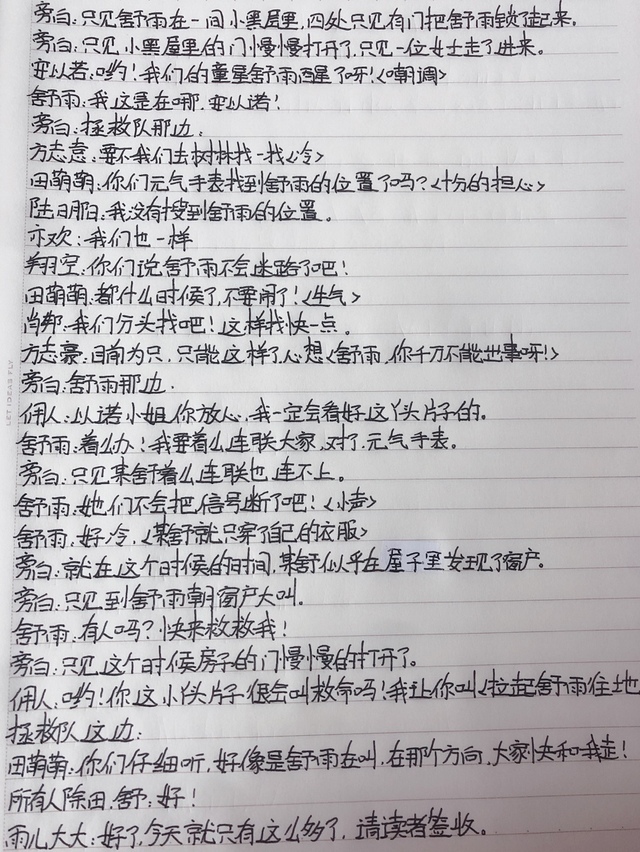 旁白:只见舒雨在一间小黑屋里,四处只见有门把舒雨锁了起来。
旁白:只见小黑屋里的门慢慢打开了,只见一位女士走了进来。
安以若:哟!我们的童星舒雨酒星了呀!<嘲调>
舒雨:我这是在哪.安以诺!
旁白:拯救队那边:
方志意:要不我们去树林找一找<冷>
田萌萌:你们元气手表找到舒雨的位置了吗?<十分的担心>
陆日那日:我没有搜到舒雨的位置。
亦欢:我们也一样
翔空:你们说舒雨不会迷路了吧!
田萌萌:都什么时候了,不要闹了!<生气>
尚邦:我们分头找吧!这样找快一点。
方志豪:目前为只,只能这样了.心想<舒雨,你千万不能出事呀!>
旁白:舒雨那边.
佣人:以诺小姐你放心,我一定会看好这丫头片子的。
舒雨:着么办!我要着么连联大家,对了.元气手表。
旁白:只见某舒着么连联也连不上。
舒雨:她们不会把信号断了吧!<小声>
舒雨:好冷,<某舒就只穿了自己的衣服>
旁白:就在这个时候的时间,某舒似乎在屋子里发现了窗户。
旁白:只见到舒雨朝窗户大叫。
舒雨:有人吗?快来救救我!
旁白:只见这个时候房子的门慢慢的打开了。
佣人:哟!你这小丫头片子很会叫救命吗!我让你叫<拉起舒雨往地
拯救队这边:
田萌萌:你们仔细听,好像是舒雨在叫,在那个方向,大家快和我走!
所有人除田.舒:好!
雨儿大大:好了,今天就只有这么多了,请读者签收。
LET IDEAS FLY